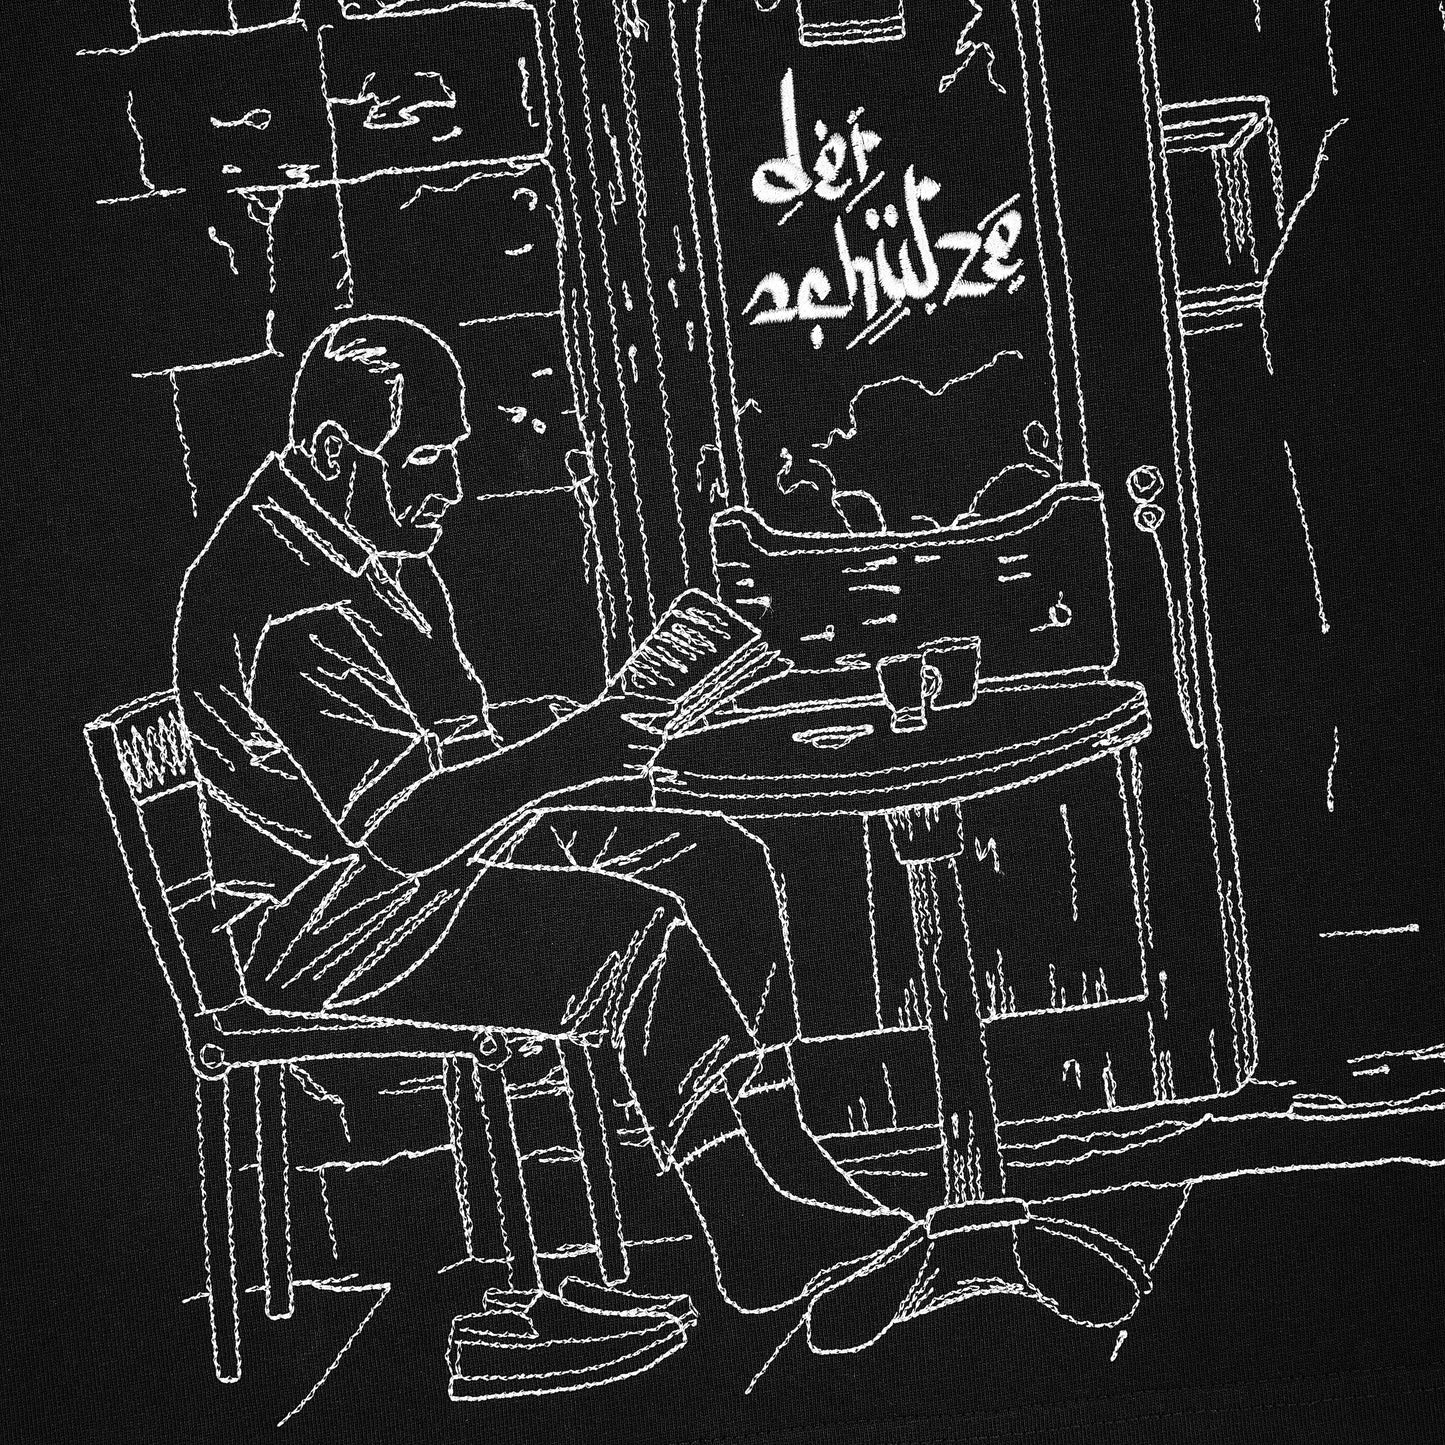 der
schütze